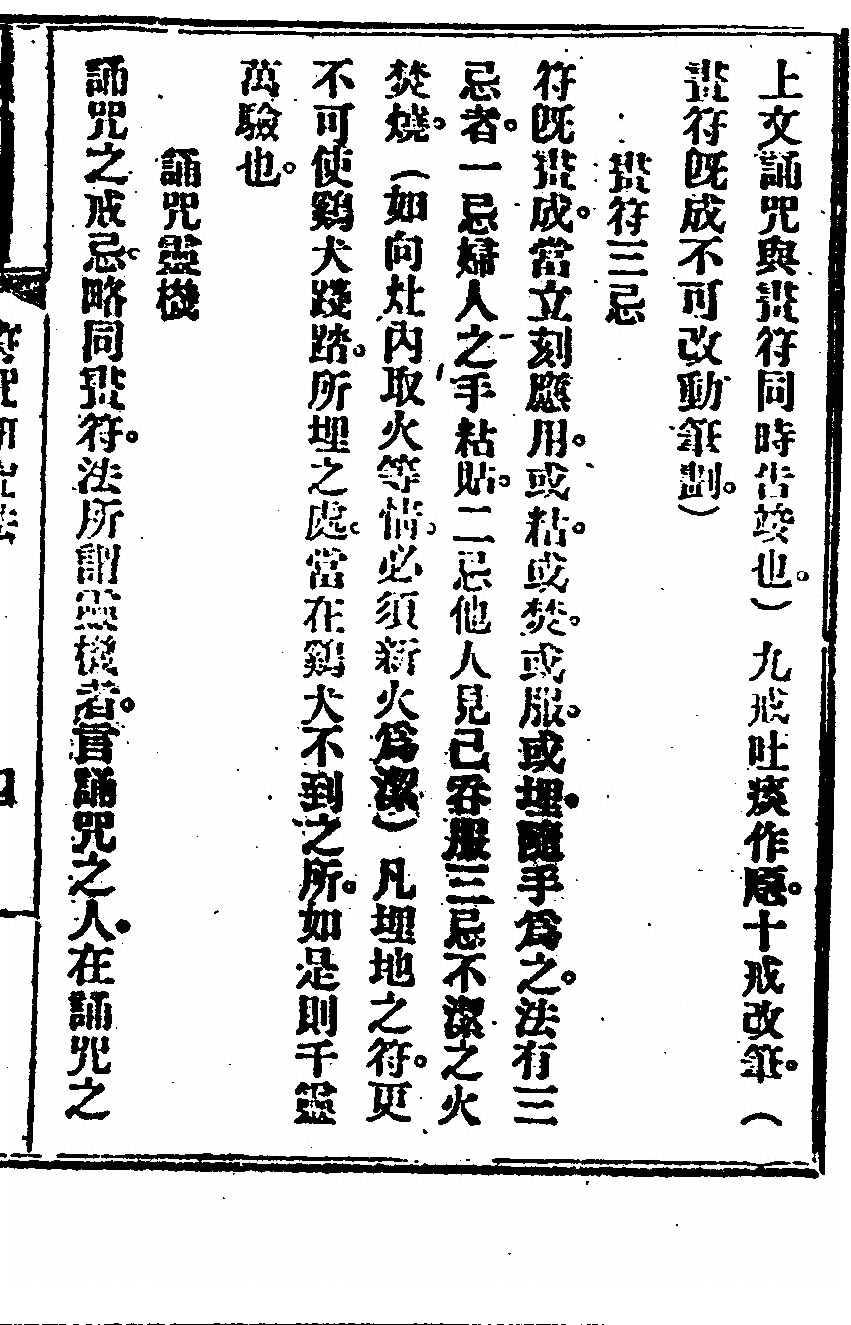 上文誦咒與畫符同時告竣也。）九戒吐痰作惡。十戒改筆。（
畫符既成不可改動筆劃。）
畫符三忌
符既畫成。當立刻應用。或粘。或焚。或服。或埋。隨手爲之。法有三
忌者。一忌婦人之手粘貼。二忌他人見己吞服三忌不潔之火
焚燒。（如向灶內取火等情。必須新火爲潔）凡埋地之符。更
不可使鷄犬踐踏。所埋之處。當在鷄犬不到之所。如是則千靈
萬驗也。
誦咒靈機
誦咒之戒忌。略同畫符。法所謂靈機者。言誦咒之人。在誦咒之
符咒研究法
四